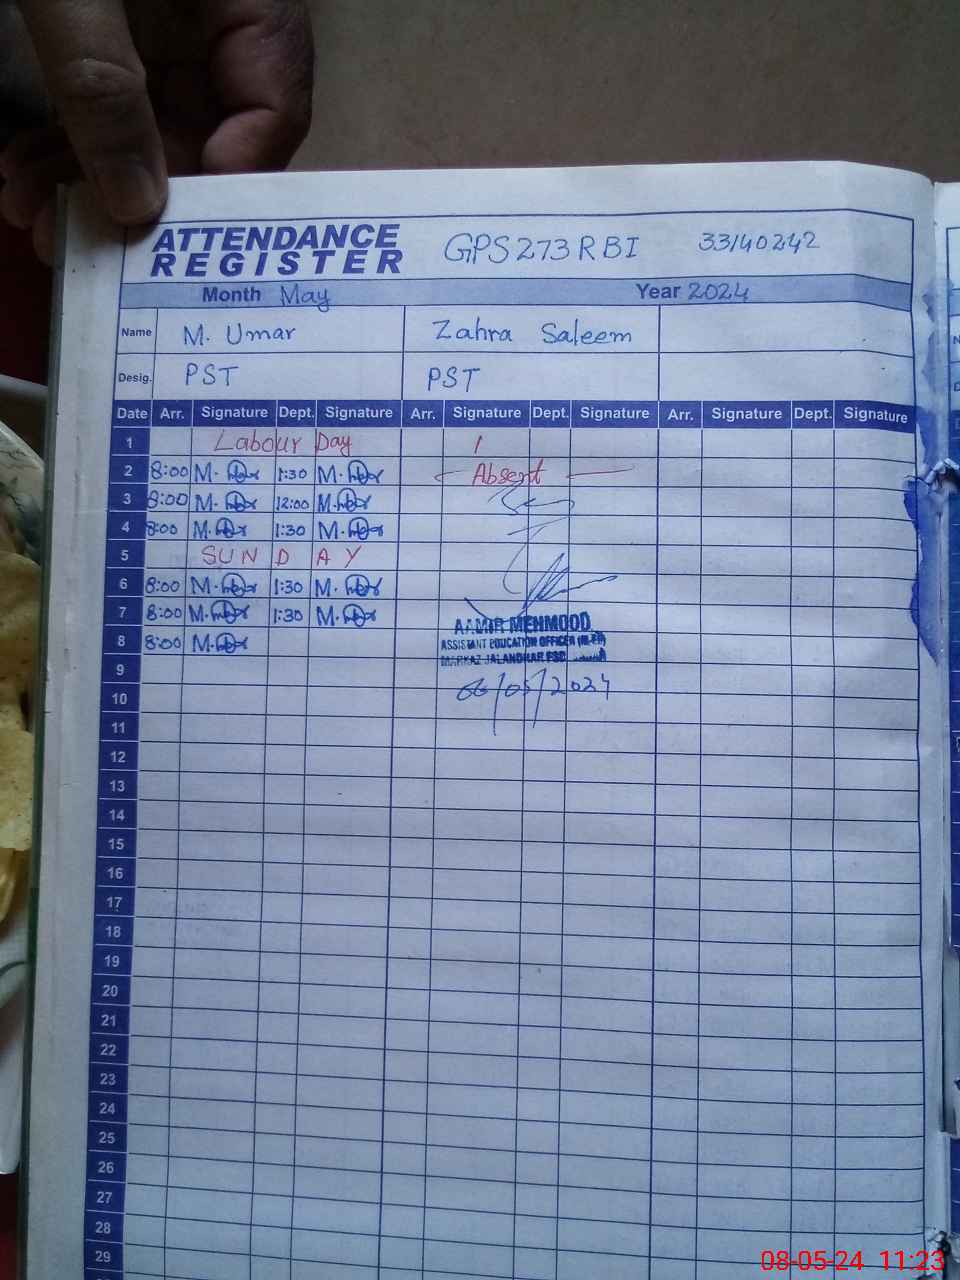 ATTENDANCE REGISTER GPS 273 RBI 33140242
Month May Year 2024
Name M. Umar Zahra Saleem
Desig. PST PST
Date Arr. Signature Dept. Signature Arr. Signature Dept. Signature Arr. Signature Dept. Signature
1 Labour Day
2 8:00 M. 1:30 M. Absent
3 8:00 M. 12:00 M.
4 8:00 M. 1:30 M.
5 SUNDAY
6 8:00 M. 1:30 M.
7 8:00 M. 1:30 M.
8 8:00 M.
AAMIR MEHMOOD
ASSISTANT EDUCATION OFFICER
MARKAZ JALANDHAR FSD
06/05/2024
9
10
11
12
13
14
15
16
17
18
19
20
21
22
23
24
25
26
27
28
29
08-05-24 11:23